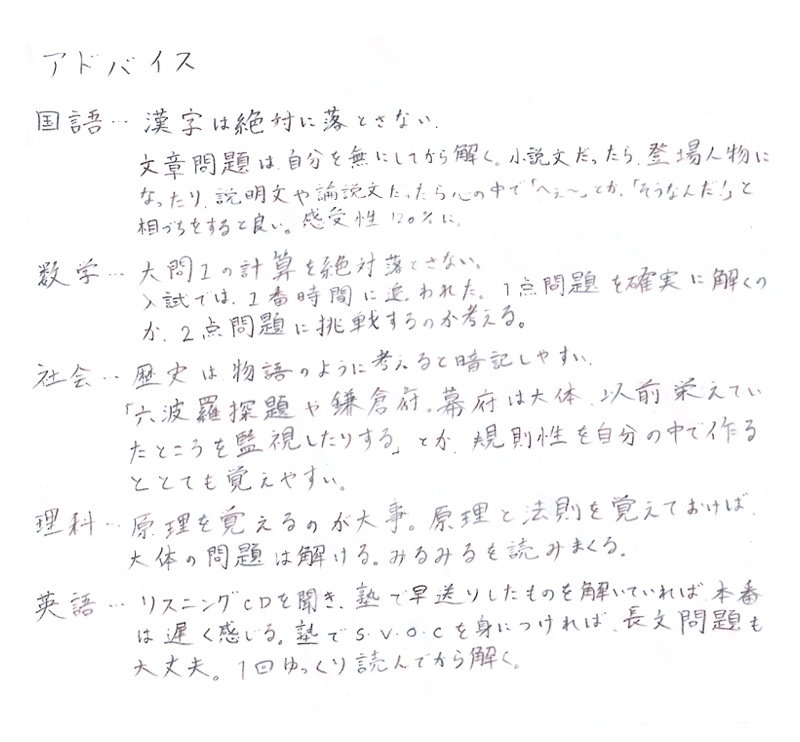 アドバイス
国語… 漢字は絶対に落とさない.
文章問題は自分を無にしてから解く。小説文だったら、登場人物に
なったり、説明文や論説文だったら心の中で「へぇ〜」とか、「そうなんだ!」と
相づちをすると良い。感受性120%に。
数学… 大問1の計算を絶対落とさない。
入試では、1番時間に追われた。1点問題を確実に解くの
か、2点問題に挑戦するのか考える。
社会… 歴史は物語のように考えると暗記しやすい.
「六波羅探題や鎌倉府。幕府は大体、以前栄えてい
たところを監視したりする」とか、規則性を自分の中で作る
ととても覚えやすい。
理科… 原理を覚えるのが大事。原理と法則を覚えておけば、
大体の問題は解ける。みるみるを読みまくる。
英語… リスニングCDを聞き、塾で早送りしたものを解いていれば、本番
は遅く感じる。塾でS.V.O.Cを身につければ、長文問題も
大丈夫。1回ゆっくり読んでから解く。